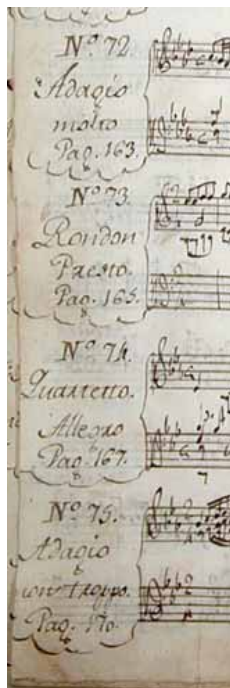 Nº. 72.
Adagio
molto
Pag. 163.
Nº 73.
Rondon
Presto.
Pag. 165.
Nº 74.
Quartetto.
Allegro
Pag. 167.
Nº 75.
Adagio
non troppo.
Pag. 170.